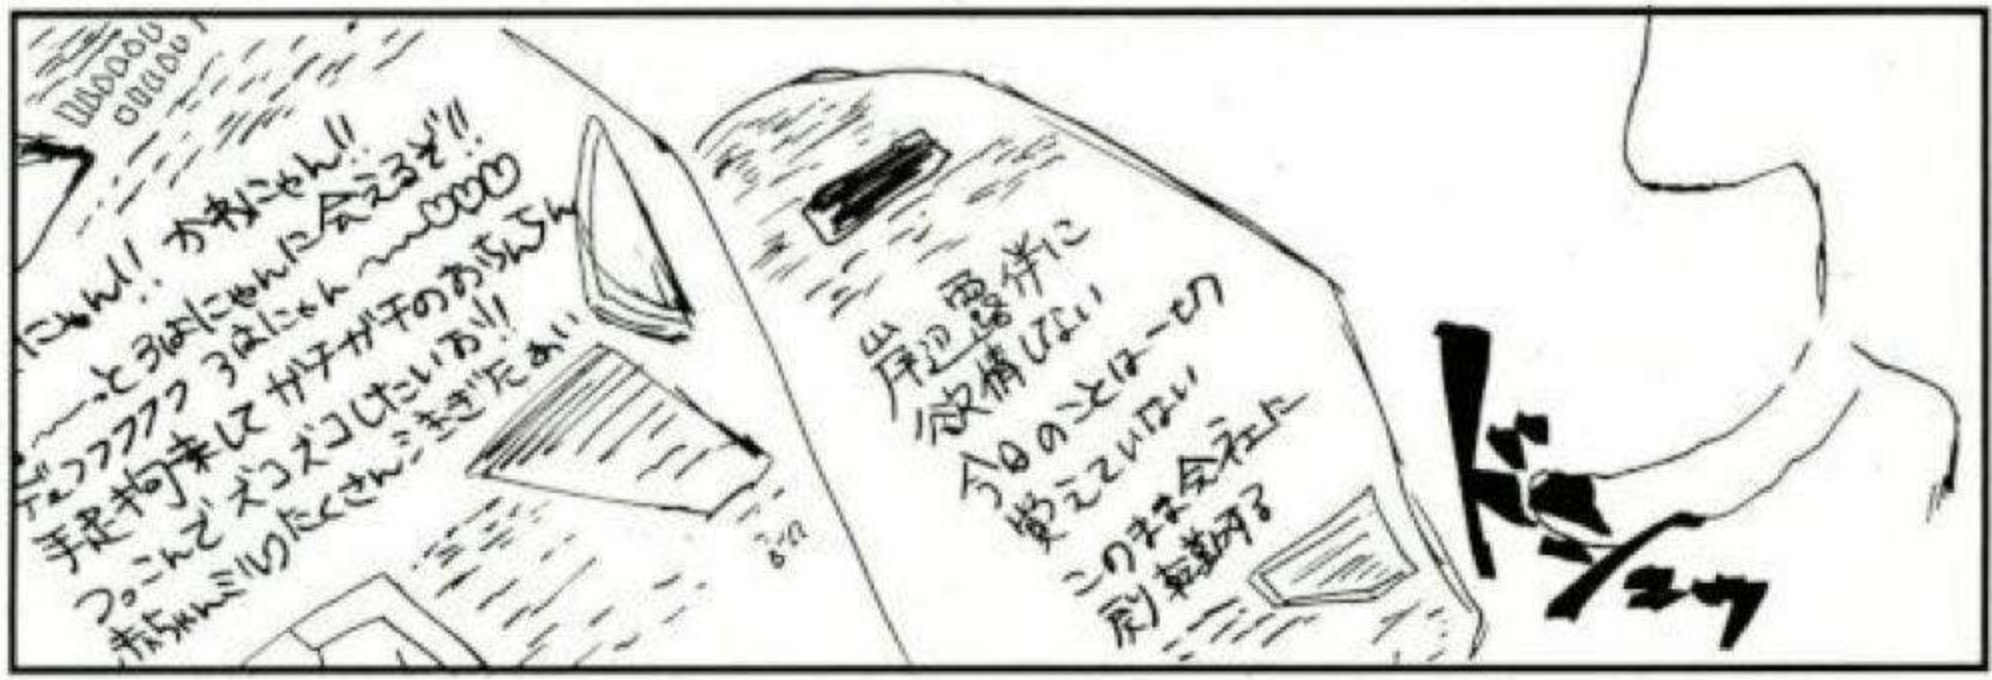 にゃん!! かわにゃん!!
〜〜っとろはにゃんに会えるぞ!!
デュフフフフ ろはにゃん〜〜♡♡♡
手足拘束して ガチガチのおちんちん
つっこんでズコズコしたいお!!
赤ちゃんミルクたくさん
岸辺露伴に
欲情しない
今日のことは一切
覚えていない
このまま会社に
即転勤する